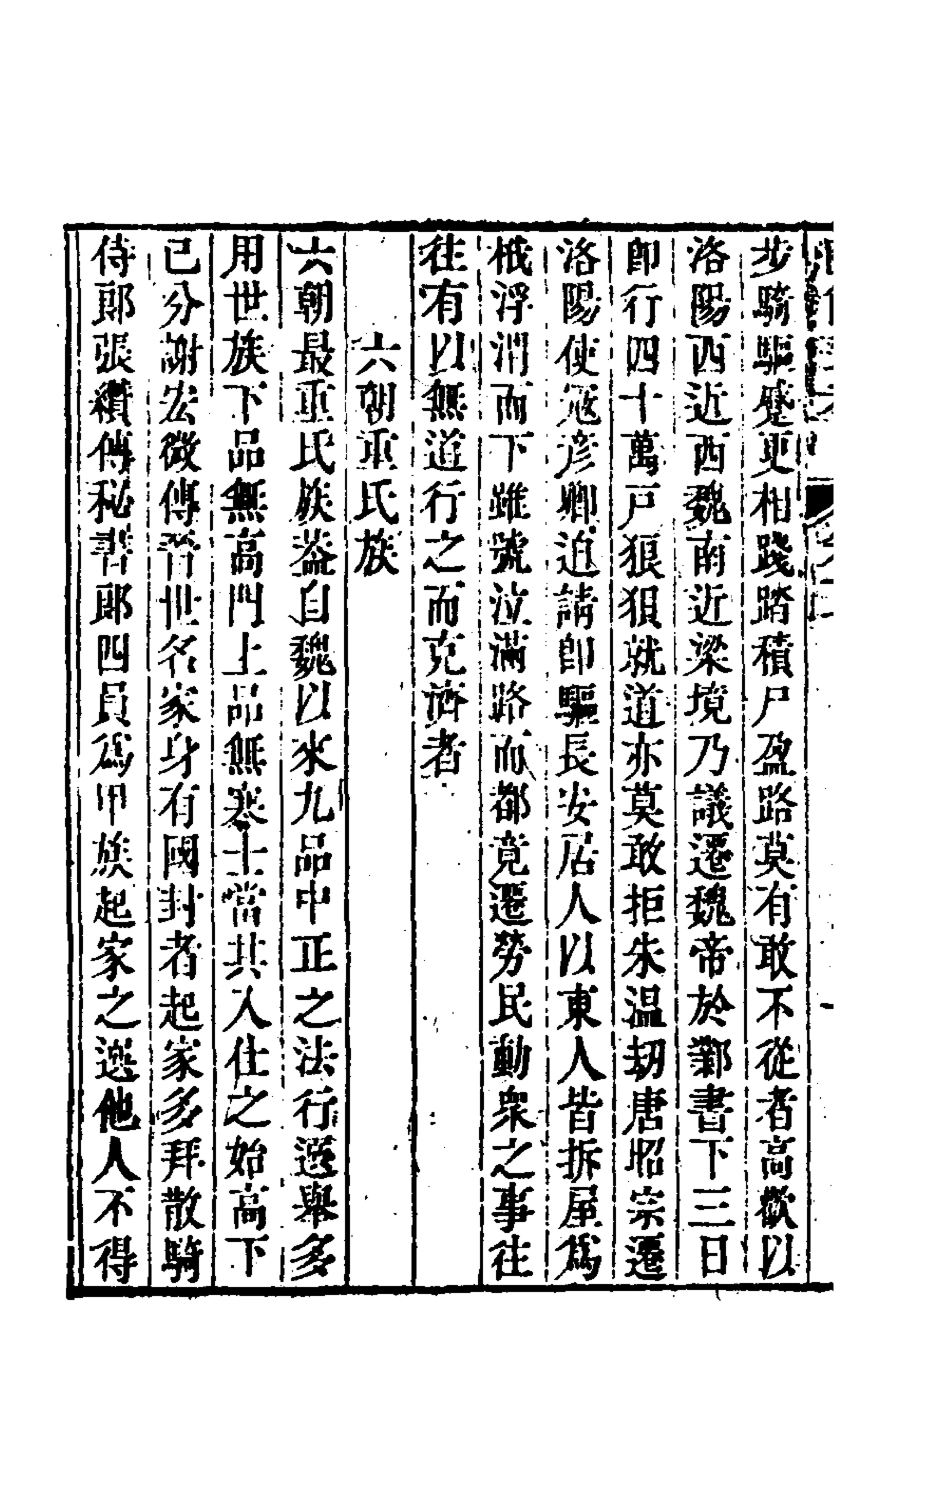 步騎驅蹙更相踐踏積尸盈路莫有敢不從者高歡以
洛陽西近西魏南近梁境乃議遷魏帝於鄴書下三日
卽行四十萬戸狼狽就道亦莫敢拒朱温刼唐昭宗遷
洛陽使冦彦卿迫請卽驅長安居人以東人皆拆屋爲
栰浮渭而下雖號泣滿路而都竟遷勞民動衆之事往
往有以無道行之而克濟者
六朝重氏族
六朝最重氏族葢自魏以來九品中正之法行選舉多
用世族下品無高門上品無寒士當其入仕之始高下
已分謝宏微傳晉世名家身有國封者起家多拜散騎
侍郎張纘傳秘書郎四員爲甲族起家之選他人不得